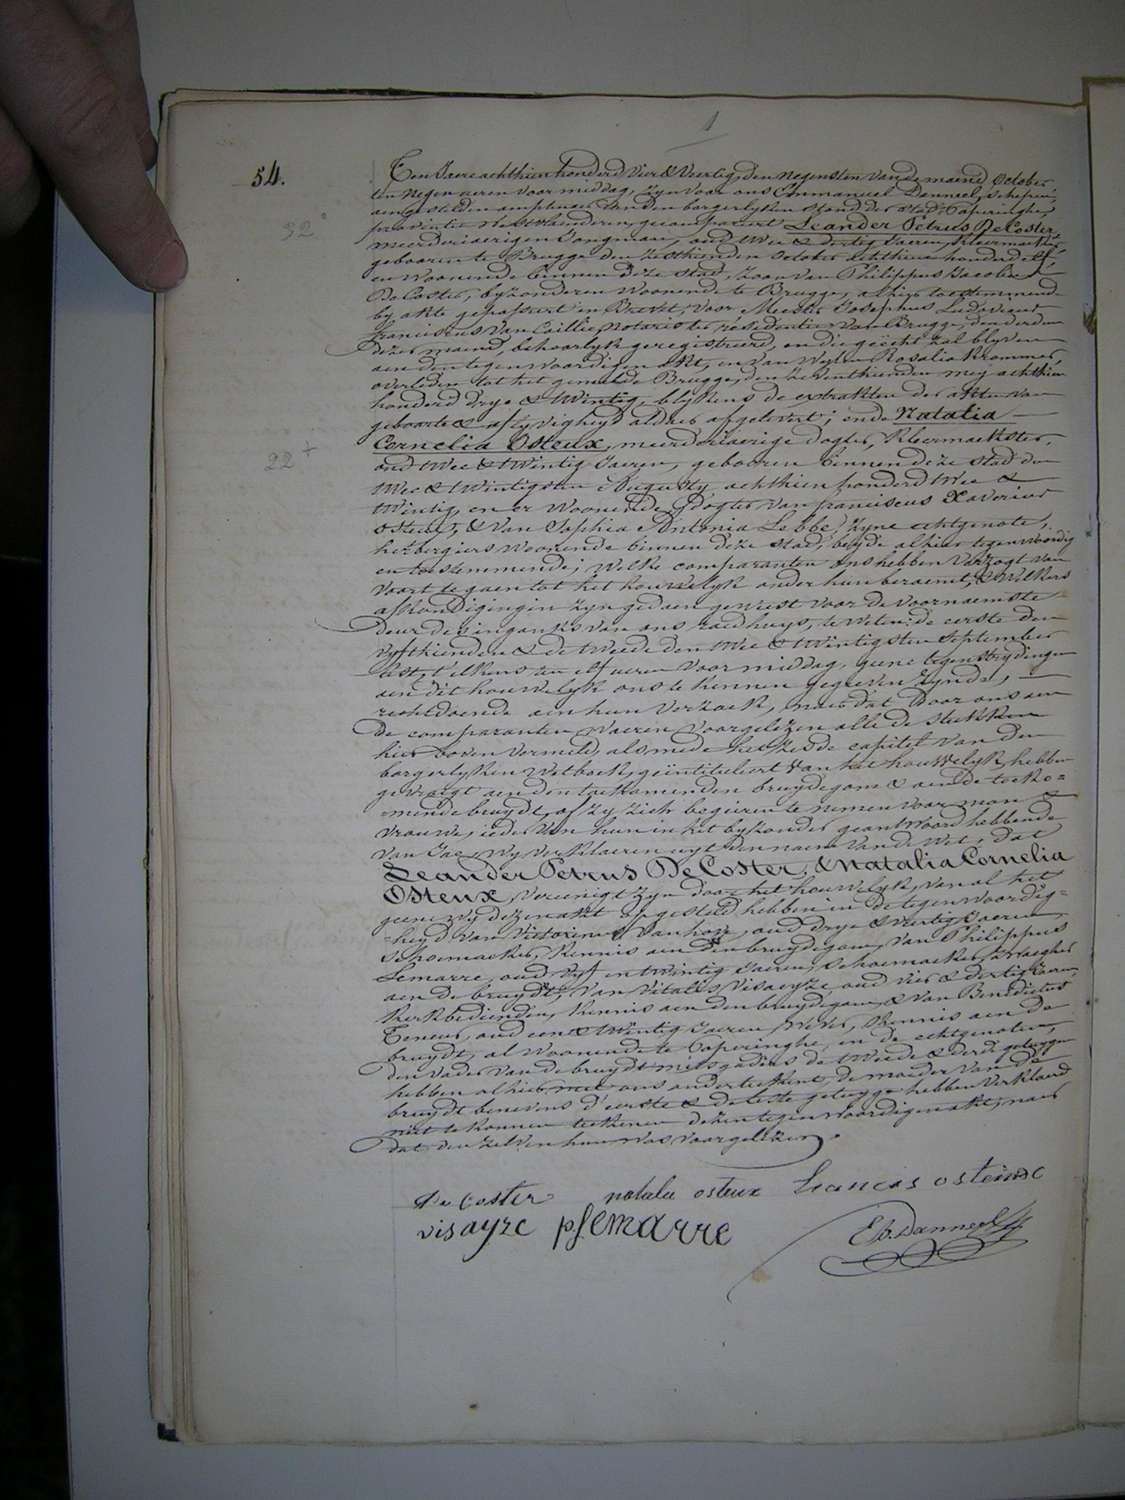 1
54.
Ten Jaere achthien honderd vier & veertig, den negensten van de maend October
ten negen ueren voor middag, zyn voor ons Emmanuel Denneel, schepen,
aengestelden amptenaer van den borgerlyken stand der stad Poperinghe,
provintie Westvlanderen, gecompareert Leander Petrus De Coster,
32°
meerderjaerigen Jongman, oud twee & dertig Jaeren, kleermaeker,
gebooren te Brugge den zesthienden October achthien honderd elf
en woonende binnen deze stad, zoon van Philippus Jacobus
De Coster, byzonderen woonende te Brugge, alhier toestemmende
by akte gepasseert in Brevet, voor Meester Josephus Ludovicus
Franciscus Van Caillie, notaris ter residentie van Brugge, den derden
dezer maend, behoorlyk geregistreerd, en die gehecht zal blyven
aen den tegenwoordigen akt, en van wylen Rosalia Krommer,
overleden tot het gemelde Brugge, den zeventhienden mey achthien
honderd drye & twintig, blykens de extrakten der akten van
geboorte & aflyvigheyd aldaer afgelevert; ende Natalia
Cornelia Osteux, meerderjaerige dogter, kleermaekster,
22 +
oud twee & twintig Jaeren, gebooren binnen deze stad den
twee & twintigsten Augusty achthien honderd twee &
twintig, en er woonende, dogter van Franciscus Xaverius
Osteux, & van Sophia Antonia Lebbe, zyne echtgenote,
herbergiers woonende binnen deze stad, beyde alhier tegenwoordig
en toestemmende; welke comparanten ons hebben verzogt van
voort te gaen tot het houwelyk onder hun beraemt, & welkers
afkondigingen zyn gedaen geweest voor de voornaemste
deur der ingank van ons raedhuys, te weten: de eerste den
vyfthienden & de tweede den twee & twintigsten september
lest, telkens ten elf ueren voor middag, geene tegenstrydingen
aen dit houwelyk ons te kennen gegeven zynde,
rechtdoende aen hun verzoek, naer dat door ons aen
de comparanten waeren voorgelezen alle de stukken
hier boven vermeld, als mede het zesde capittel van den
borgerlyken wetboek, geïntituleert van het houwelyk, hebben
gevraegt aen den toekomenden bruydegom & aen de toeko=
mende bruydt, of zy zich begeeren te nemen voor man &
vrouwe, ieder van hun in het byzonder geantwoord hebbende
van Jae, wy verklaeren uyt den naem van de wet, dat
Leander Petrus De Coster, & Natalia Cornelia
Osteux, vereenigt zyn door het houwelyk, van al het
geene wy dezen akt opgesteld hebben in de tegenwoordig=
heyd van Victorinus Vanhove, oud drye & veertig Jaeren,
schoemaeker, kennis aen den bruydegom, van Philippus
Lemarre, oud vyf en twintig Jaeren, schoemaeker, zwaegher
aen de bruydt, van Vitalis Visaeyze, oud vier & dertig Jaeren,
kerkbedienden, kennis aen den bruydegom, & van Benedictus
Teneur, oud een & twintig Jaeren, wever, kennis aen de
bruydt, al woonende te Poperinghe, en de echtgenoten,
den vader van de bruydt mitsgaders de tweede & derde getuygen
hebben alhier met ons onderteekent, de moeder van de
bruydt benevens d'eerste & de leste getuyge hebben verklaerd
niet te konnen teekenen dezen tegenwoordigen akt, naer
dat den zelven hun was voorgelezen.
De Coster natalie osteux francois osteux
visayze phlemarre Eb. Denneel